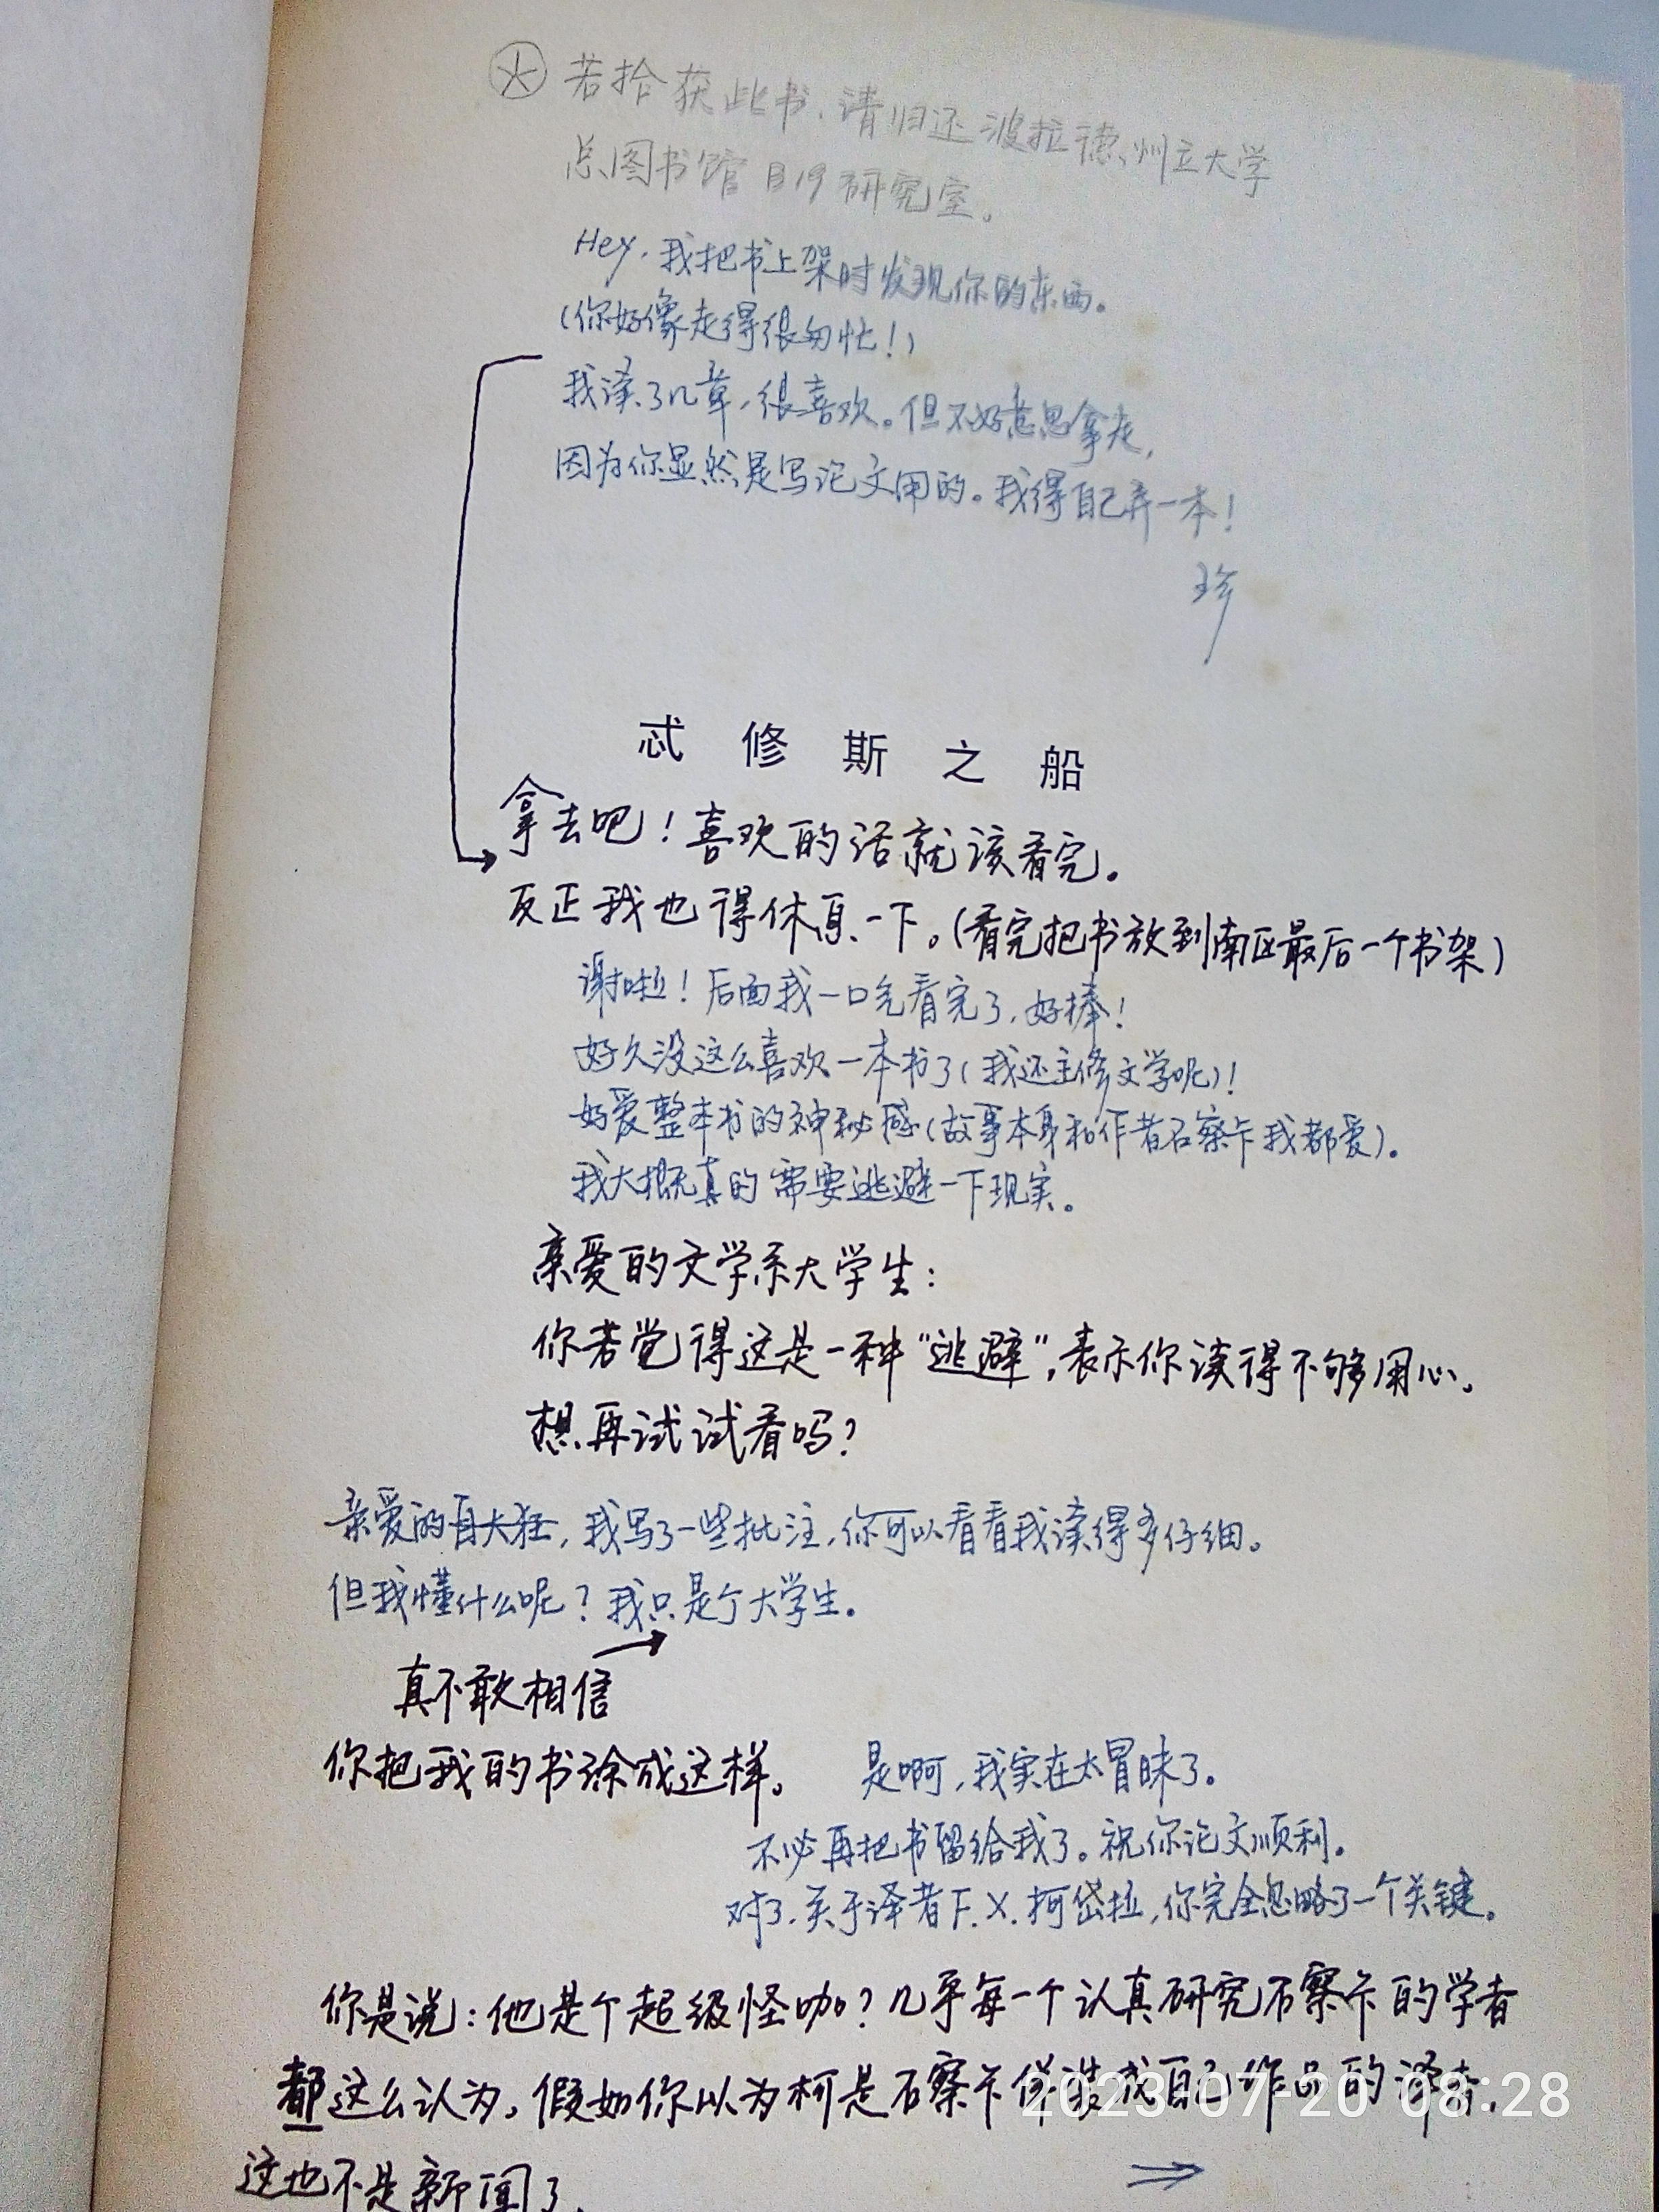 大 若拾获此书,请归还波拉德州立大学
总图书馆 B19 研究室。
Hey,我把书上架时发现你的东西。
(你好像走得很匆忙!)
我读了几章,很喜欢。但不好意思拿走,
因为你显然是写论文用的。我得自己弄一本!
珍
忒修斯之船
拿去吧!喜欢的话就该看完。
反正我也得休息一下。(看完把书放到南区最后一个书架)
谢啦!后面我一口气看完了,好棒!
好久没这么喜欢一本书了(我还主修文学呢)!
好爱整本书的神秘感(故事本身和作者石察卡我都爱)。
我大概真的需要逃避一下现实。
亲爱的文学系大学生:
你若觉得这是一种“逃避”,表示你读得不够用心。
想再试试看吗?
亲爱的自大狂,我写了一些批注,你可以看看我读得多仔细。
但我懂什么呢?我只是个大学生。
真不敢相信
你把我的书涂成这样。
是啊,我实在太冒昧了。
不必再把书留给我了。祝你论文顺利。
对了,关于译者F.X.柯岱拉,你完全忽略了一个关键。
你是说:他是个超级怪咖?几乎每一个认真研究石察卡的学者
都这么认为。假如你以为柯是石察卡伪装成自己作品的译者,
这也不是新闻了。
2023-07-20 08:28